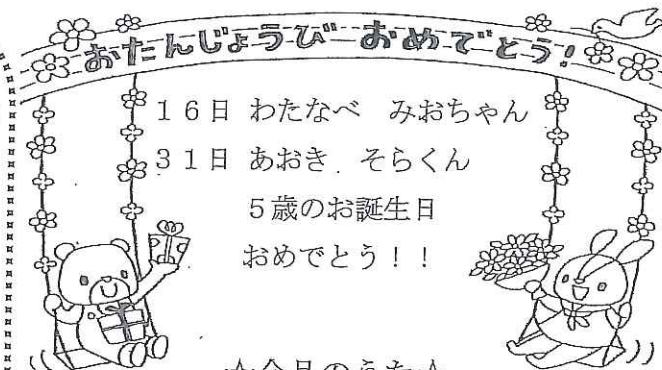 おたんじょうび おめでとう！
１６日 わたなべ みおちゃん
３１日 あおき そらくん
５歳のお誕生日
おめでとう！！
☆今月のうた☆